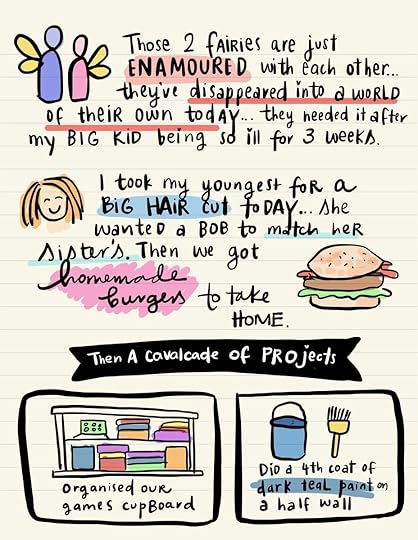 Those 2 fAiRies are just
ENAMOURED with each other...
they've disappeared into a WORLD
of theiR own today... they needed it after
my BIG KiD being so ill for 3 weeks.
I took my youngest foR a
BiG HAiR cut toDAY... She
wanted a BOB to match heR
sisteR's. Then we got
homemade
burgers to take
HOME.
Then A cavalcade of PROjects
organised our
games cupBoard
DiD a 4th coat of
dark teaL paint on
a half wall